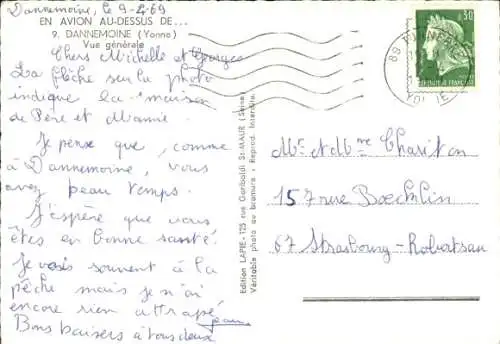 Dannemoine, le 9-4-69
EN AVION AU-DESSUS DE...
9. DANNEMOINE (Yonne)
Vue générale
Chers Michelle et Georges
La flèche sur la photo
indique la maison
de Père et Mamie.
Je pense que, comme
à Dannemoine, vous
avez beau temps.
J'espère que vous
êtes en bonne santé.
Je vais souvent à la
pêche mais je n'ai
encore rien attrapé.
Bons baisers à tous deux
Jean
Edition LAPIE - 125 rue Garibaldi St-MAUR (Seine)
Véritable photo au bromure - Reprod. Interdite
89 TONNERRE
YONNE
0,30
REPUBLIQUE FRANÇAISE
Mr et Mme Chariton
157 rue Boecklin
67 Strasbourg - Robertsau